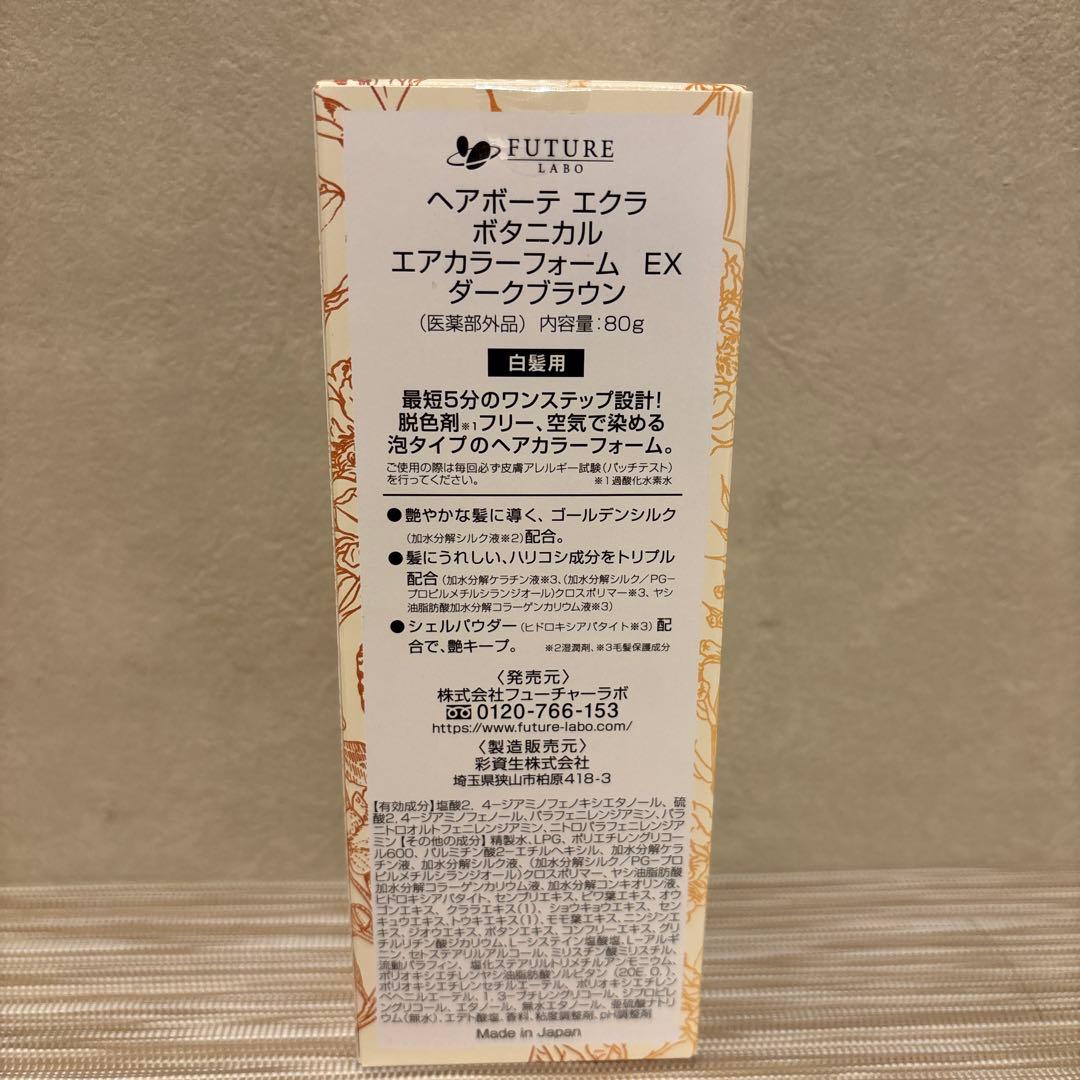 FUTURE
LABO
ヘアボーテ エクラ
ボタニカル
エアカラーフォーム EX
ダークブラウン
(医薬部外品) 内容量:80g
白髪用
最短5分のワンステップ設計!
脱色剤※1フリー、空気で染める
泡タイプのヘアカラーフォーム。
ご使用の際は毎回必ず皮膚アレルギー試験(パッチテスト)
を行ってください。 ※1過酸化水素水
●艶やかな髪に導く、ゴールデンシルク
(加水分解シルク液※2)配合。
●髪にうれしい、ハリコシ成分をトリプル
配合(加水分解ケラチン液※3、(加水分解シルク/PG-
プロピルメチルシランジオール)クロスポリマー※3、ヤシ
油脂肪酸加水分解コラーゲンカリウム液※3)
●シェルパウダー(ヒドロキシアパタイト※3)配
合で、艶キープ。 ※2湿潤剤、※3毛髪保護成分
〈発売元〉
株式会社フューチャーラボ
0120-766-153
https://www.future-labo.com/
〈製造販売元〉
彩資生株式会社
埼玉県狭山市柏原418-3
【有効成分】塩酸2,4-ジアミノフェノキシエタノール、硫
酸2,4-ジアミノフェノール、パラフェニレンジアミン、パラ
ニトロオルトフェニレンジアミン、ニトロパラフェニレンジア
ミン【その他の成分】精製水、LPG、ポリエチレングリコー
ル600、パルミチン酸2-エチルヘキシル、加水分解ケラ
チン液、加水分解シルク液、(加水分解シルク/PG-プロ
ピルメチルシランジオール)クロスポリマー、ヤシ油脂肪酸
加水分解コラーゲンカリウム液、加水分解コンキオリン液、
ヒドロキシアパタイト、センブリエキス、ビワ葉エキス、オウ
ゴンエキス、クララエキス(1)、ショウキョウエキス、セン
キュウエキス、トウキエキス(1)、モモ葉エキス、ニンジンエ
キス、ジオウエキス、ボタンエキス、コンフリーエキス、グリ
チルリチン酸ジカリウム、L-システイン塩酸塩、L-アルギ
ニン、セトステアリルアルコール、ミリスチン酸ミリスチル、
流動パラフィン、塩化ステアリルトリメチルアンモニウム、
ポリオキシエチレンヤシ油脂肪酸ソルビタン(20E.O.)、
ポリオキシエチレンセチルエーテル、ポリオキシエチレン
ベヘニルエーテル、1,3-ブチレングリコール、ジプロピレ
ングリコール、エタノール、無水エタノール、亜硫酸ナトリ
ウム(無水)、エデト酸塩、香料、粘度調整剤、pH調整剤
Made in Japan